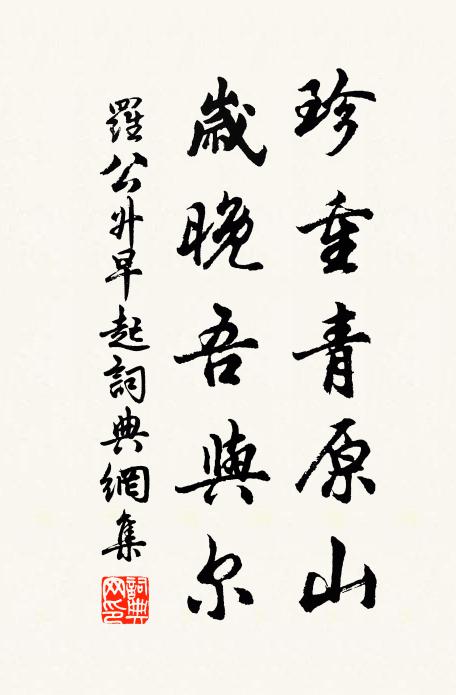 珍重青原山
歲晚吾與尔
羅公升早起詞典網集
詞典網印